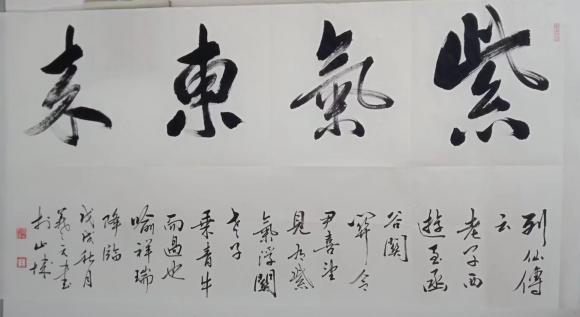 紫氣東来
列仙傳
云
老子西
遊至函
谷關
關令
尹喜望
見有紫
氣浮關
老子
乗青牛
而過也
喻祥瑞
降臨
戊戌秋月
天書
於山城